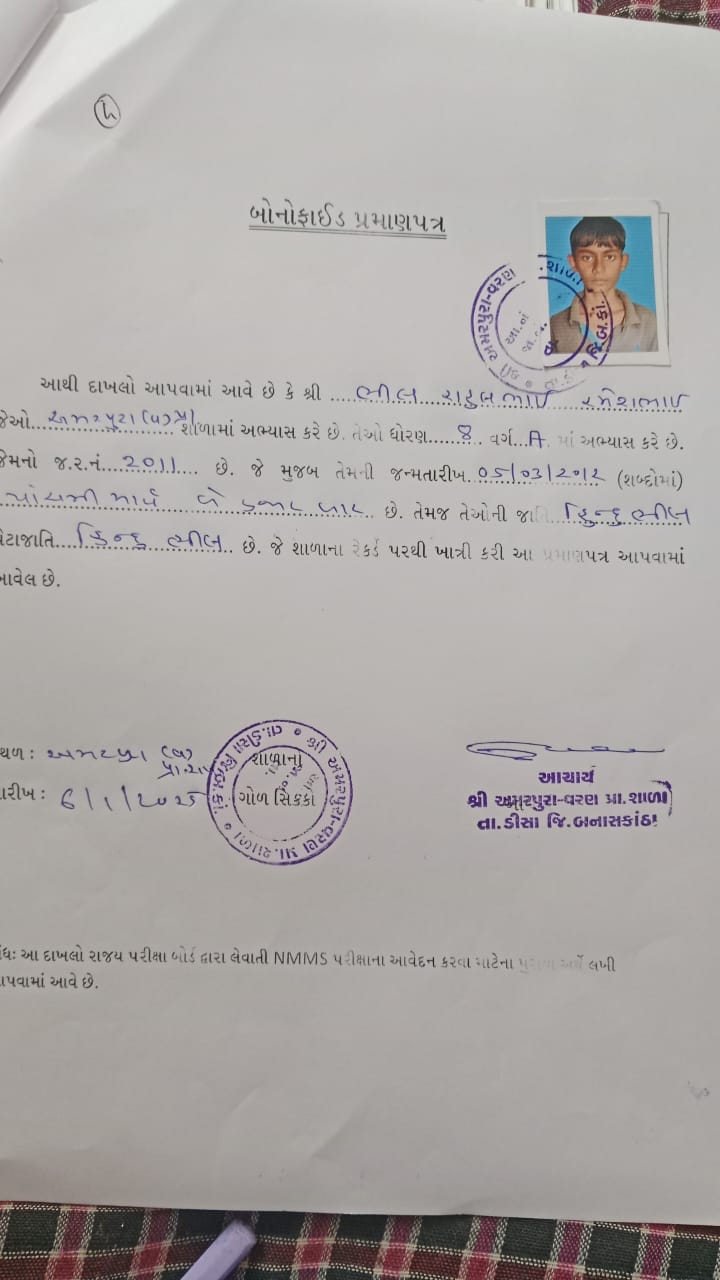 ૫
બોનોફાઈડ પ્રમાણપત્ર
આથી દાખલો આપવામાં આવે છે કે શ્રી ....ભીલ રાહુલભાઈ રમેશભાઈ
જેઓ...અમરપુરા(વ)પ્રા શાળામાં અભ્યાસ કરે છે. તેઓ ધોરણ.....8.. વર્ગ..A.. માં અભ્યાસ કરે છે.
જેમનો જ.ર.નં...2011.... છે. જે મુજબ તેમની જન્મતારીખ.05/03/2012 (શબ્દોમાં)
પાંચમી માર્ચ બે હજાર બાર.. છે. તેમજ તેઓની જાતિ..હિન્દુ ભીલ
પેટાજાતિ...હિન્દુ ભીલ.. છે. જે શાળાના રેકર્ડ પરથી ખાત્રી કરી આ પ્રમાણપત્ર આપવામાં
આવેલ છે.
અમરપુરા-વરણ
શાળા
જિ.બ.કાં.
થળ: અમરપુરા (વ)
પ્રા.શા
ારીખ: 6/1/2025
શ્રી અમરપુરા-વરણ પ્રા.શાળા તા.ડીસા
શાળાના
ગોળ સિકકો
આચાર્ય
શ્રી અમરપુરા-વરણ પ્રા.શાળા
તા.ડીસા જિ.બનાસકાંઠા
ોંધ: આ દાખલો રાજય પરીક્ષા બોર્ડ દ્વારા લેવાતી NMMS પરીક્ષાના આવેદન કરવા માટેના પુરાવા અર્થે લખી
ાપવામાં આવે છે.